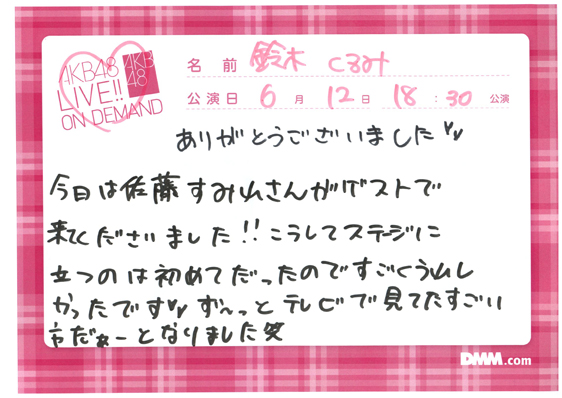 AKB48
LIVE!!
ON DEMAND
AKB
48
名 前 鈴木 くるみ
公演日 6月 12日 18:30 公演
ありがとうございました♡♡
今日は佐藤すみれさんがゲストで
来てくださいました!!こうしてステージに
立つのは初めてだったのですごくうれし
かったです♡♡ ず〜っとテレビで見てたすごい
方だぁーとなりました笑
DMM.com